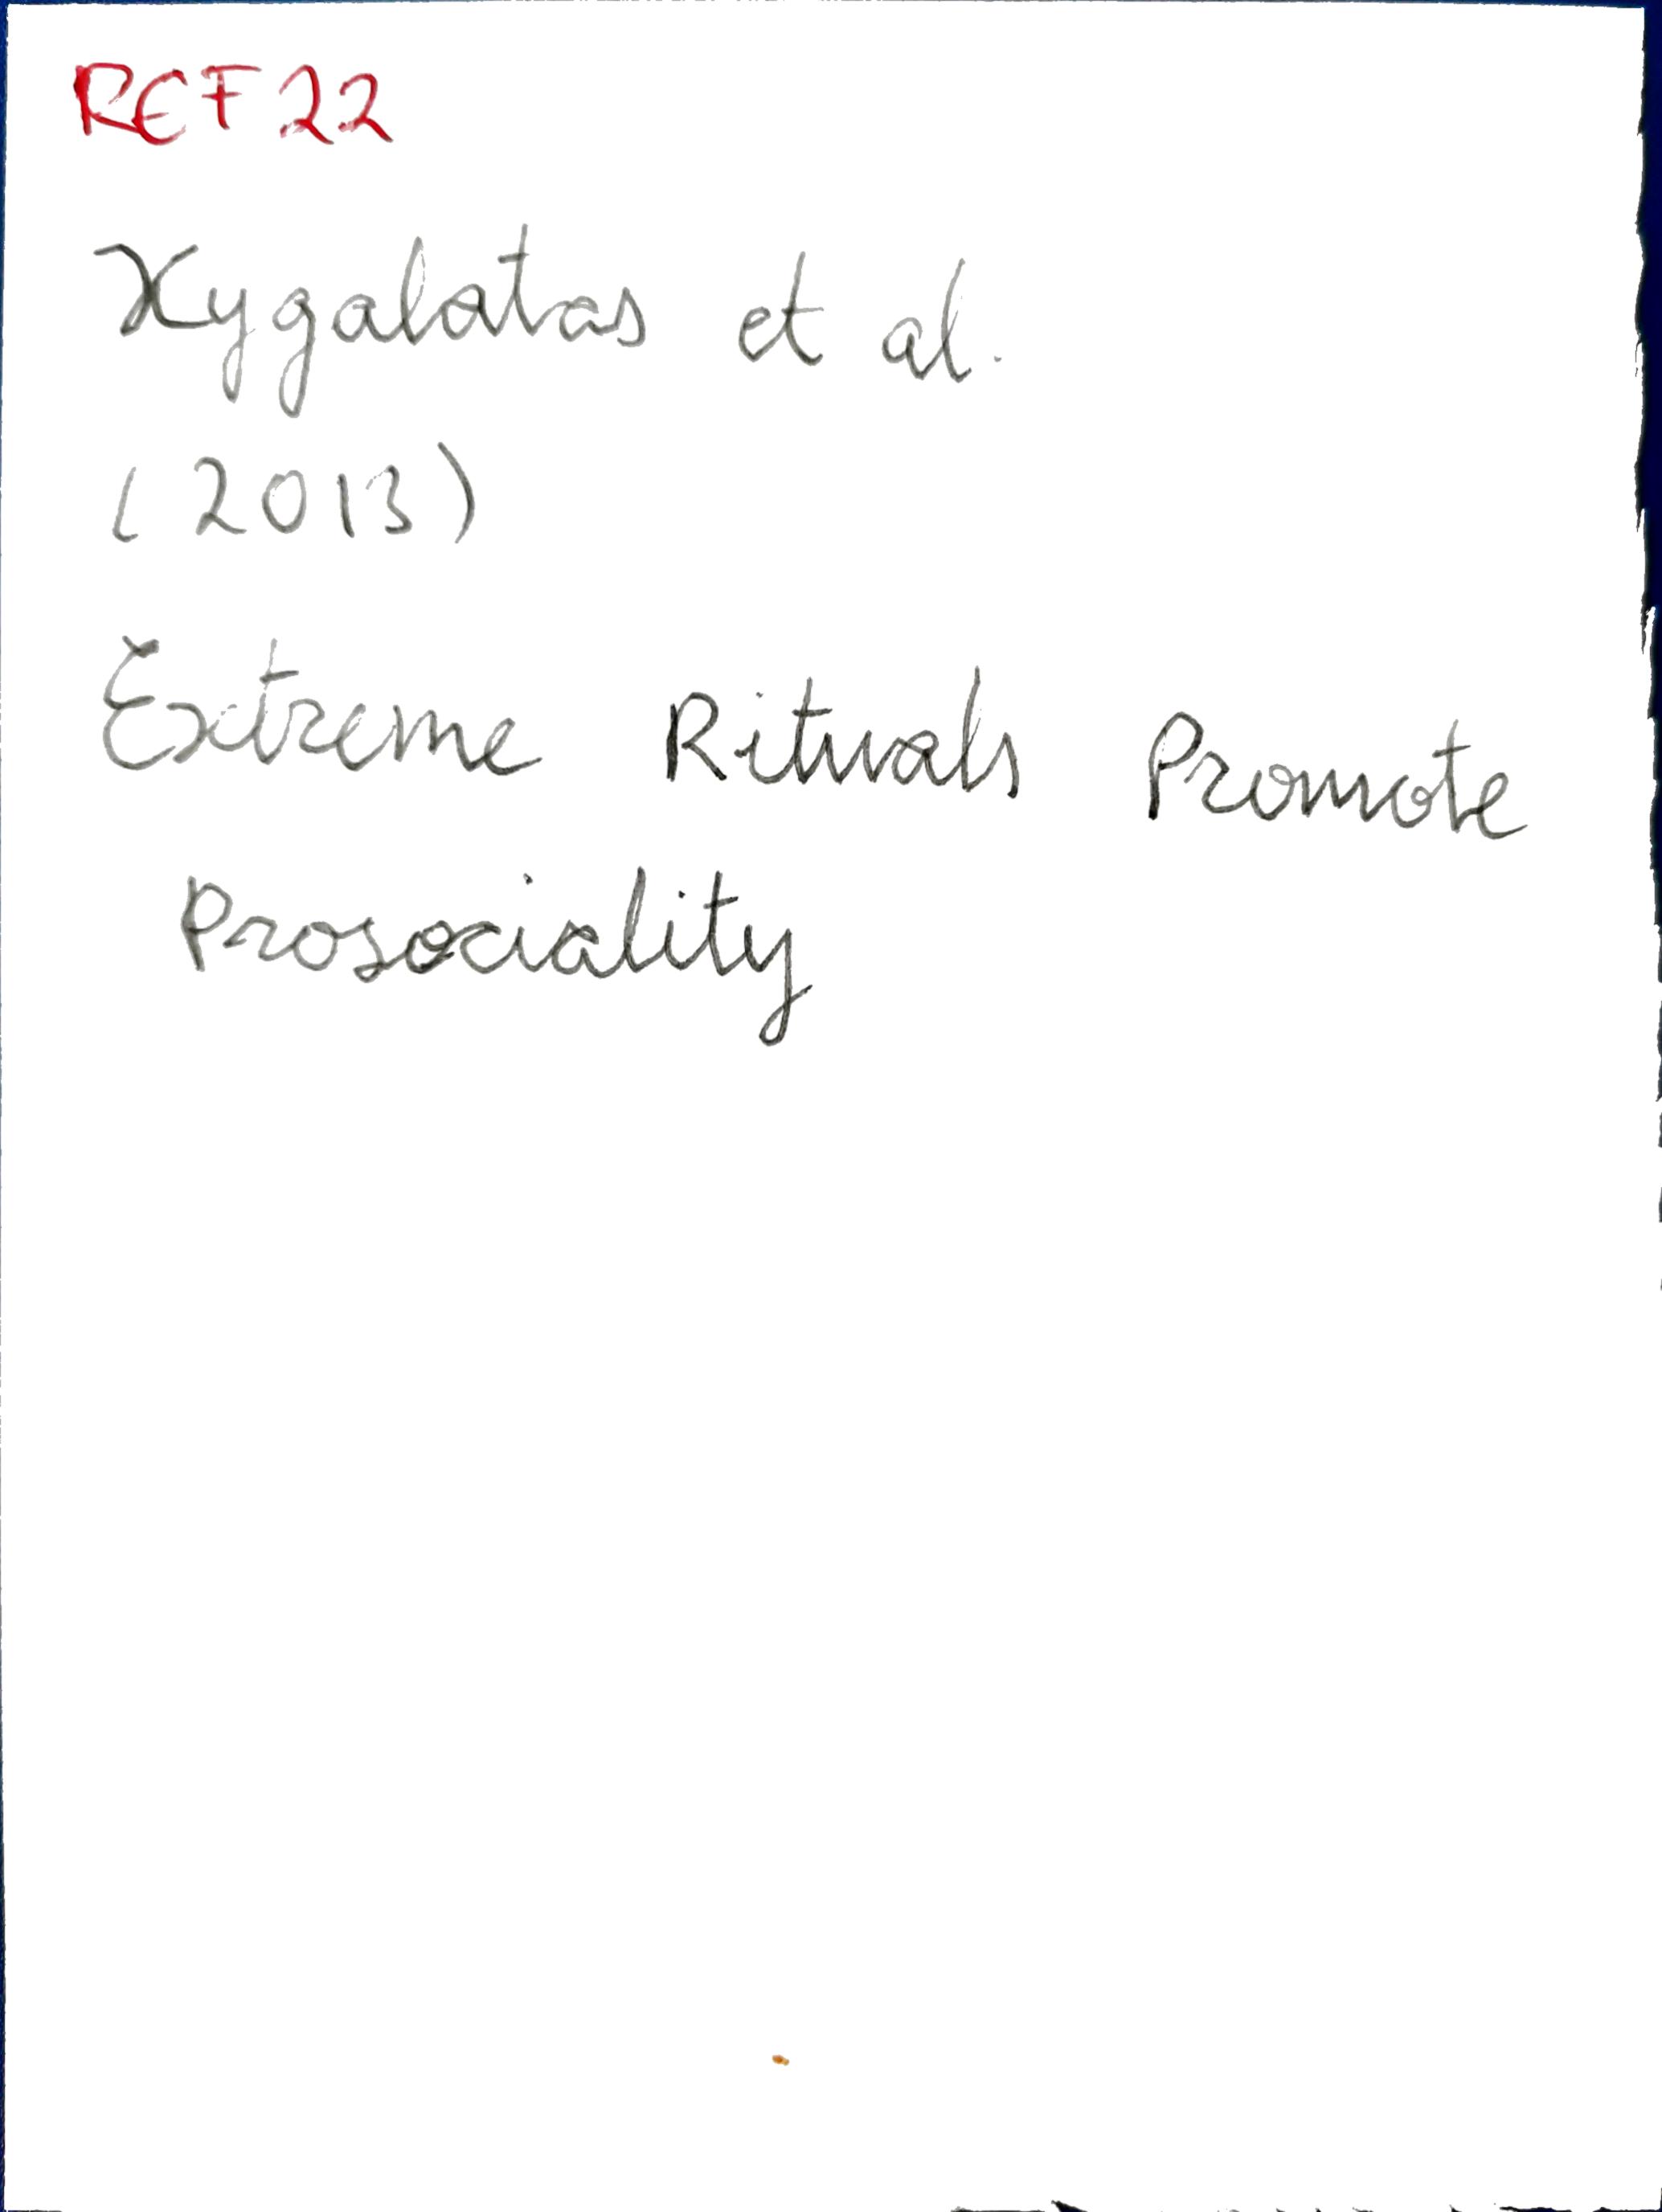 REF 22
Xygalatas et al.
(2013)
Extreme Rituals Promote
Prosociality